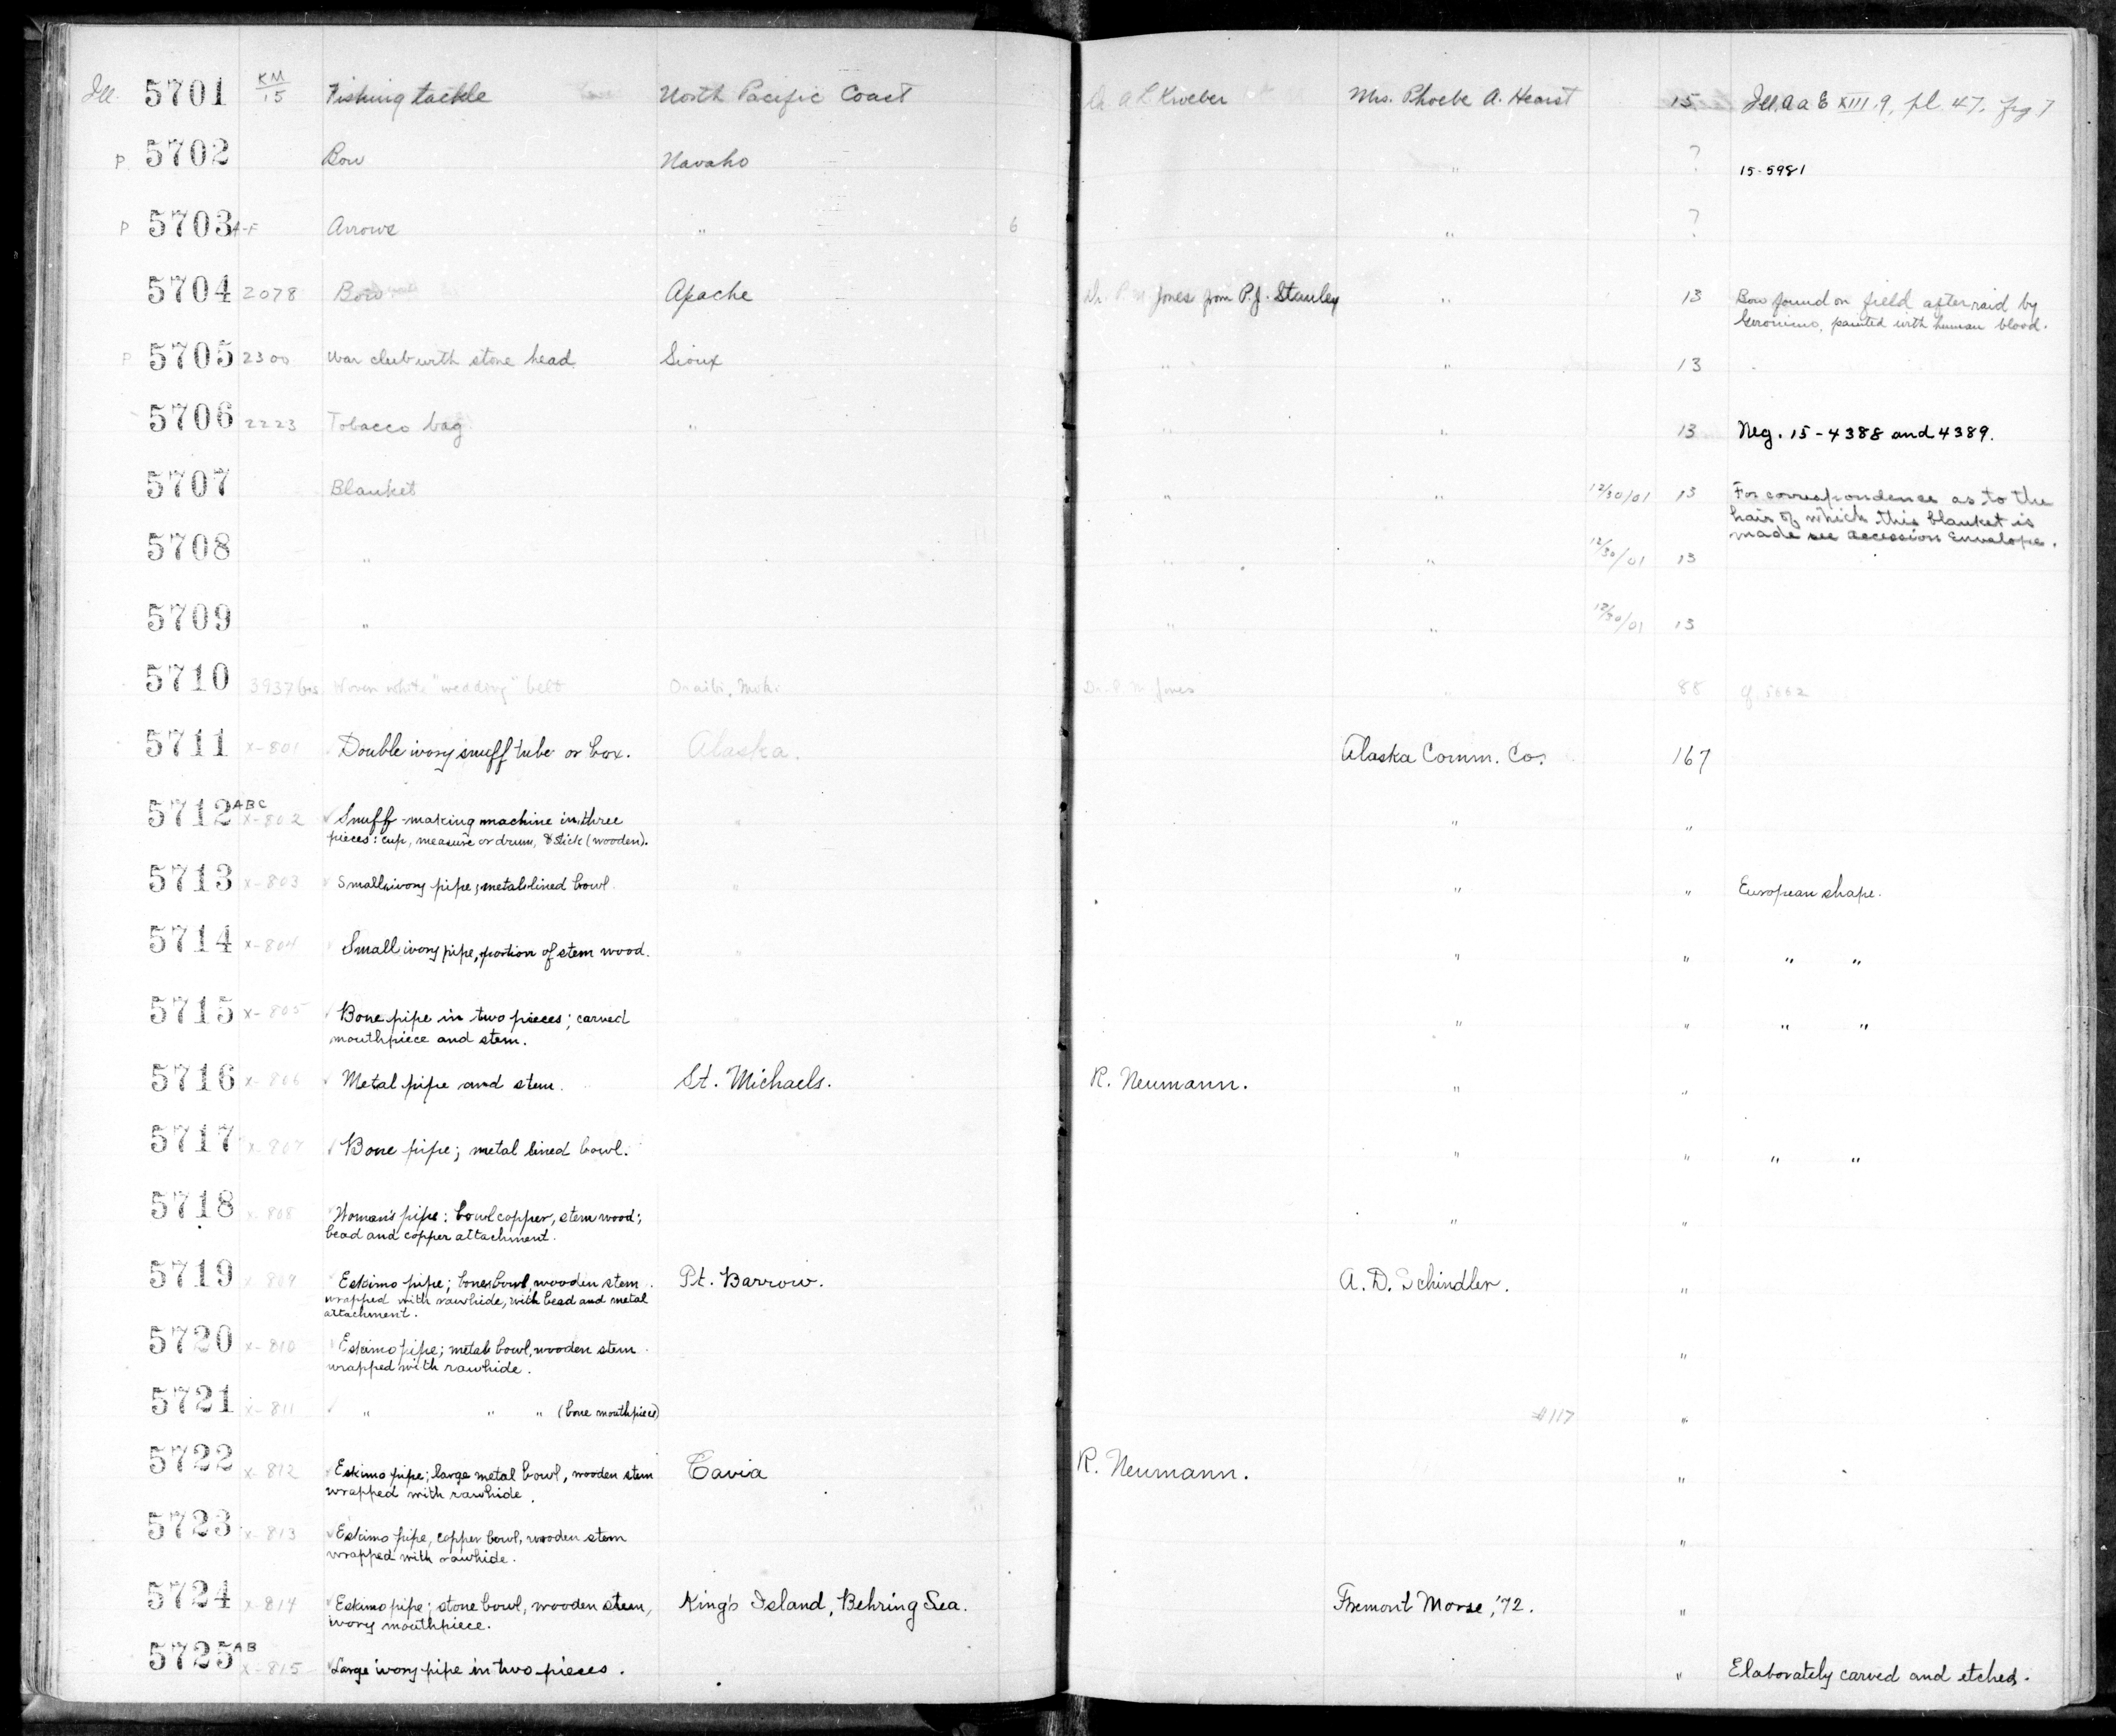 Ill. 5701 KM/15 Fishing tackle North Pacific Coast A L Kroeber Mrs. Phoebe A. Hearst 15 Ill. A a E XIII.9, pl. 47, fig 7
P. 5702 Bow Navaho " ? 15-5981
P 5703 A-F Arrows " 6 " ?
5704 2078 Bow Apache Dr. P. M. Jones from P.J. Stanley " 13 Bow found on field after raid by
Geronimo, painted with human blood.
P 5705 2300 War club with stone head Sioux " " 13
5706 2223 Tobacco bag " " " 13 Neg. 15-4388 and 4389.
5707 Blanket " " 12/30/01 13 For correspondence as to the
hair of which this blanket is
made see accession envelope.
5708 " " " 12/30/01 13
5709 " " " 12/30/01 13
5710 3937 bis Woven white "wedding" belt Oraibi, Moki Dr. P. M. Jones " 88 cf. 5662
5711 X-801 Double ivory snuff tube or box. Alaska. Alaska Comm. Co. 167
5712 ABC X-802 Snuff-making machine in three
pieces: cup, measure or drum, & stick (wooden). " " "
5713 X-803 Small ivory pipe; metal lined bowl. " " " European shape.
5714 X-804 Small ivory pipe, portion of stem wood. " " " " "
5715 X-805 Bone pipe in two pieces; carved
mouthpiece and stem. " " " " "
5716 X-806 Metal pipe and stem. St. Michaels. R. Neumann. " "
5717 X-807 Bone pipe; metal lined bowl. " " " "
5718 X-808 Woman's pipe: bowl copper, stem wood;
bead and copper attachment. " "
5719 X-809 Eskimo pipe; bone bowl, wooden stem
wrapped with rawhide, with bead and metal
attachment. Pt. Barrow. A. D. Schindler. "
5720 X-810 Eskimo pipe; metal bowl, wooden stem
wrapped with rawhide. "
5721 X-811 " " " (bone mouthpiece) #117 "
5722 X-812 Eskimo pipe; large metal bowl, wooden stem
wrapped with rawhide. Tavia R. Neumann. "
5723 X-813 Eskimo pipe, copper bowl, wooden stem
wrapped with rawhide. "
5724 X-814 Eskimo pipe; stone bowl, wooden stem,
ivory mouthpiece. King's Island, Behring Sea. Fremont Morse, '72. "
5725 AB X-815 Large ivory pipe in two pieces. " Elaborately carved and etched.